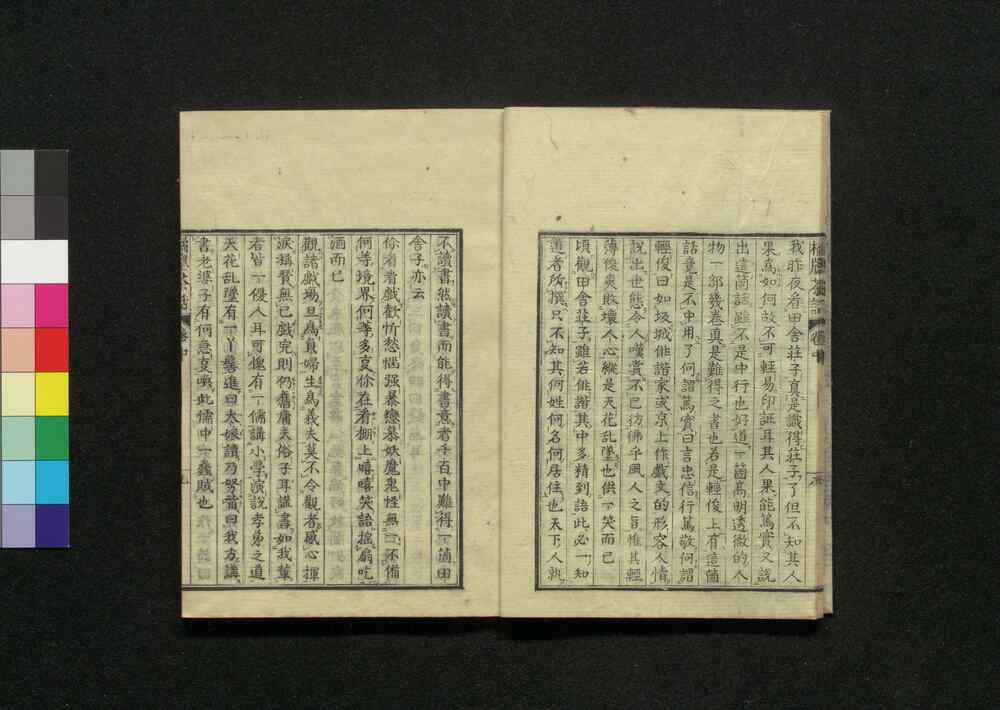 我昨夜看田舍莊子真是識得莊子了但不知其人
果爲如何故不可輕易印証耳其人果能篤實又説
出這箇話雖不是中行也好道一箇髙明透徹的人
物一部幾卷真是難得之書也若是輕俊上有這箇
話竟是不中用了何謂篤實曰言忠信行篤敬何謂
輕俊曰如圾城俳諧家或京上作戲文的形容人情
説出世態令人嘆賞不已彷佛乎風人之旨惟其輕
薄俊爽敗壞人心縱是天花乱墜也供一笑而已
頃觀田舍莊子雖若俳諧其中多精到語此必一知
道者所撰只不知其何姓何名何居住也天下人孰
不讀書然讀書而能得書意者千百中難得一箇田
舍子亦云
你看看戲歡忻愁惱强暴戀慕妖魔鬼怪無一不備
何等境界何等多変徐在看棚上嘻嘻笑語揺扇吃
酒而已
觀諸戲場旦爲貞婦生爲義夫莫不令觀者感心揮
淚稱賢無已戲完則仍舊庸夫俗子耳講書如我輩
者皆一優人耳可愧有一儒講小學演説孝弟之道
天花乱墜有一丫鬟進曰太娘讀乃努蕾曰我方講
書老婆子有何急変喚此儒中一蟊賊也